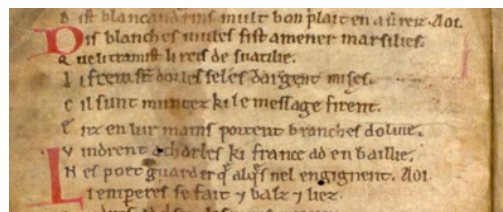 D ist blancandrins mult bon plait en aureiz. Aoi.
Dis blanches mules fist amener marsilies.
Que li tramist li reis de suatilie.
Li frein sunt dor les seles dargent mises.
Cil sunt muntez ki le message firent.
Enz en lur mains portent branches dolive.
Vindrent a charles ki france ad en baillie.
Nes poet guarder que alques nel engignent. Aoi.
Li emperes se fait y balz y liez.